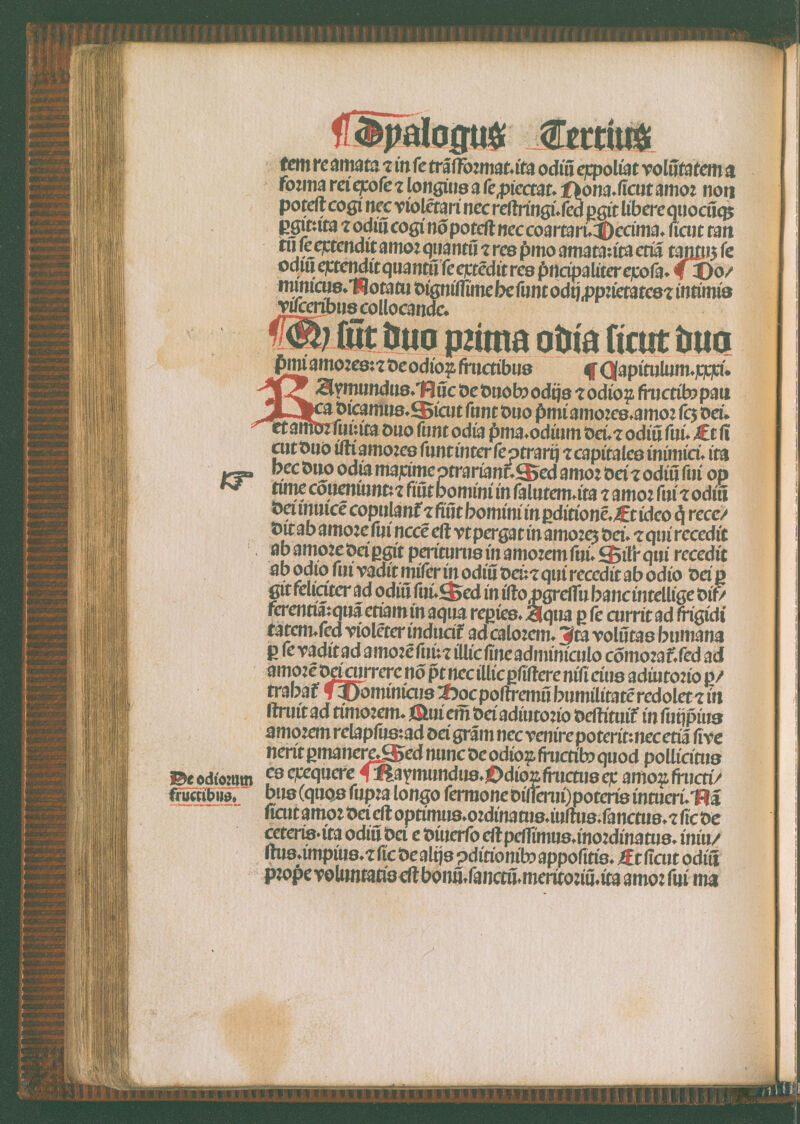 ¶ Dyalogus Tertius
tem re amata ⁊ in se trãsformat. ita odiũ expoliat volũtatem a
forma rei exose ⁊ longius a se ꝓiectat. Nona. sicut amor non
potest cogi nec violẽtari nec restringi. sed ꝑgit libere quocũqꝫ
ꝑgit: ita ⁊ odiũ cogi nõ potest nec coartari. Decima. sicut tan
tũ se extendit amor quantũ ⁊ res p̍mo amata: ita etiã tantuꝫ se
odiũ extendit quantũ se extẽdit res p̍ncipaliter exosa. ¶ Do/
minicus. Notatu dignissime he sunt odij ꝓprietates ⁊ intimis
visceribus collocande.
¶ Qꝙ sũt duo prima odia sicut duo
p̍mi amores: ⁊ de odioꝝ fructibus ¶ Capitulum. xxxi.
RAymundus. Nũc de duobꝰ odijs ⁊ odioꝝ fructibꝰ pau
ca dicamus. Sicut sunt duo p̍mi amores. amor scꝫ dei.
et amor sui: ita duo sunt odia p̍ma. odium dei. ⁊ odiũ sui. Et si
cut duo isti amores sunt inter se ↄtrarij ⁊ capitales inimici. ita
hec duo odia maxime ↄtrariant᷑. Sed amor dei ⁊ odiũ sui op
time cõueniunt: ⁊ fiũt homini in salutem. ita ⁊ amor sui ⁊ odiũ
dei inuicẽ copulant᷑ ⁊ fiũt homini in ꝑditionẽ. Et ideo q̍ rece/
dit ab amore sui nccẽ est vt pergat in amoreꝫ dei. ⁊ qui recedit
ab amore dei ꝑgit periturus in amorem sui. Silr qui recedit
ab odio sui vadit miser in odiũ dei: ⁊ qui recedit ab odio dei ꝑ
git feliciter ad odiũ sui. Sed in isto ꝓgressu hanc intellige dif/
ferentiã: quã etiam in aqua reꝑies. Aqua ꝑ se currit ad frigidi
tatem. sed violẽter inducit᷑ ad calorem. Ita volũtas humana
ꝑ se vadit ad amorẽ sui: ⁊ illic sine adminiculo cõmorat᷑. sed ad
amorẽ dei currere nõ p̃t nec illic ꝑsistere nisi eius adiutorio ꝑ/
trahat᷑ ¶ Dominicus Hoc postremũ humilitatẽ redolet ⁊ in
struit ad timorem. Qui em̃ dei adiutorio destituit᷑ in suijp̍ius
amorem relapsus: ad dei grãm nec venire poterit: nec etiã si ve
nerit ꝑmanere. Sed nunc de odioꝝ fructibꝰ quod pollicitus
es exequere ¶ Raymundus. Odioꝝ fructus ex amoꝝ fructi/
bus (quos supra longo sermone disserui) poteris intueri. Nã
sicut amor dei est optimus. ordinatus. iustus. sanctus. ⁊ sic de
ceteris. ita odiũ dei e diuerso est pessimus. inordinatus. iniu/
stus. impius. ⁊ sic de alijs ↄditionibꝰ appositis. Et sicut odiũ
prop̍e voluntatis est bonũ. sanctũ. meritoriũ. ita amor sui ma
De odiorum
fructibus.